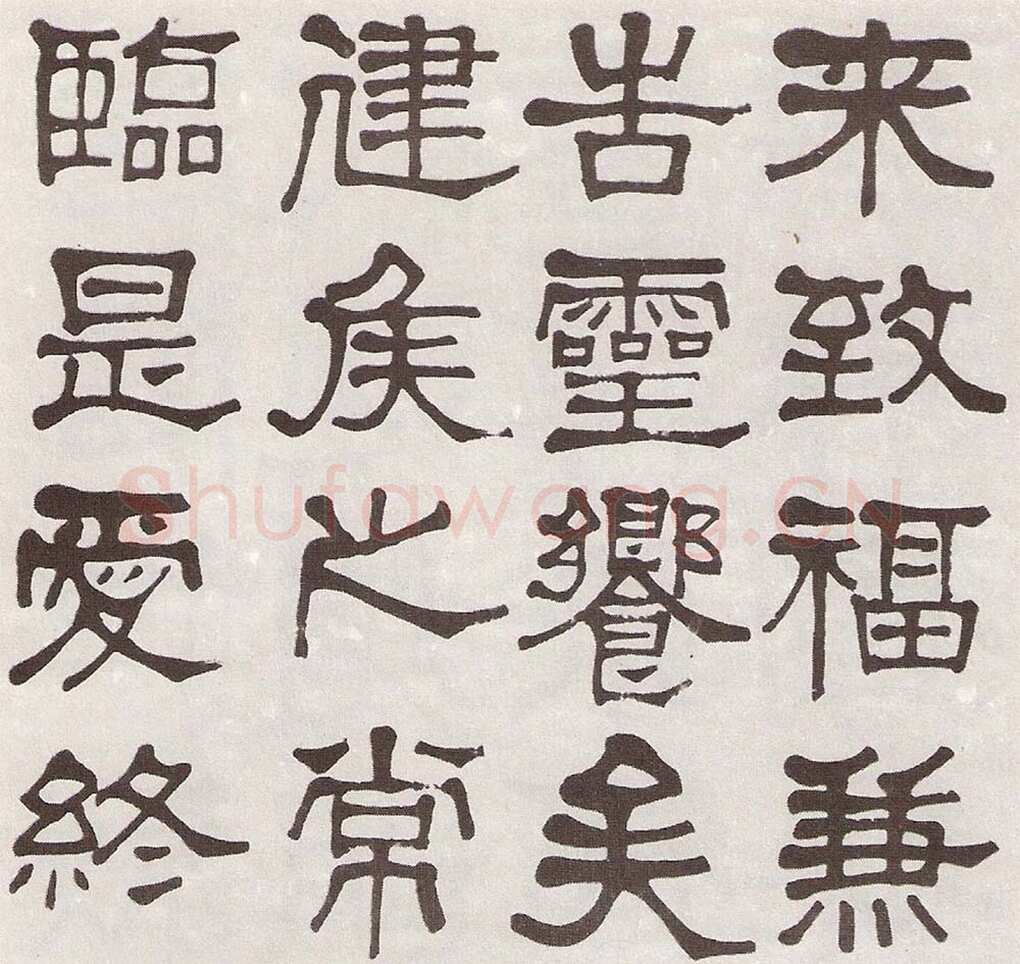 来致福兼
告靈饗矣
建侯之常
臨是愛終
Shufawang.CN